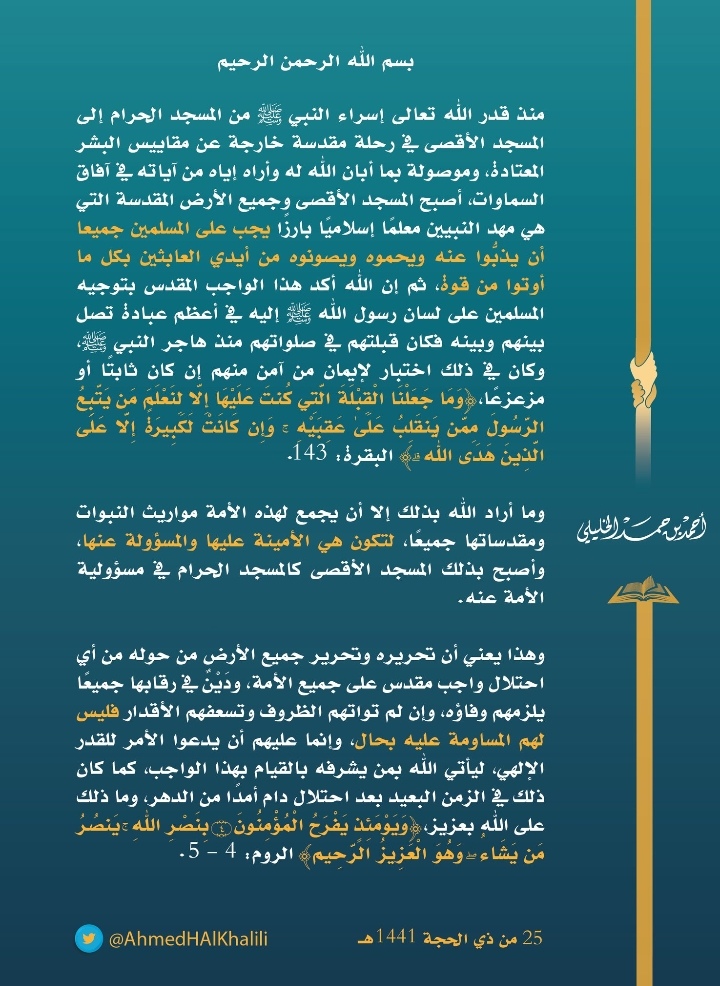 بسم الله الرحمن الرحيم
منذ قدر الله تعالى إسراء النبي ﷺ من المسجد الحرام إلى
المسجد الأقصى في رحلة مقدسة خارجة عن مقاييس البشر
المعتادة، وموصولة بما أبان الله له وأراه إياه من آياته في آفاق
السماوات، أصبح المسجد الأقصى وجميع الأرض المقدسة التي
هي مهد النبيين معلمًا إسلاميًا بارزًا يجب على المسلمين جميعا
أن يذبُّوا عنه ويحموه ويصونوه من أيدي العابثين بكل ما
أوتوا من قوة، ثم إن الله أكد هذا الواجب المقدس بتوجيه
المسلمين على لسان رسول الله ﷺ إليه في أعظم عبادة تصل
بينهم وبينه فكان قبلتهم في صلواتهم منذ هاجر النبي ﷺ،
وكان في ذلك اختبار لإيمان من آمن منهم إن كان ثابتًا أو
مزعزعًا، ﴿وَمَا جَعَلْنَا الْقِبْلَةَ الَّتِي كُنتَ عَلَيْهَا إِلَّا لِنَعْلَمَ مَن يَتَّبِعُ
الرَّسُولَ مِمَّن يَنقَلِبُ عَلَىٰ عَقِبَيْهِ ۚ وَإِن كَانَتْ لَكَبِيرَةً إِلَّا عَلَى
الَّذِينَ هَدَى اللَّهُ ۗ﴾ البقرة: 143.
وما أراد الله بذلك إلا أن يجمع لهذه الأمة مواريث النبوات
ومقدساتها جميعًا، لتكون هي الأمينة عليها والمسؤولة عنها،
وأصبح بذلك المسجد الأقصى كالمسجد الحرام في مسؤولية
الأمة عنه.
وهذا يعني أن تحريره وتحرير جميع الأرض من حوله من أي
احتلال واجب مقدس على جميع الأمة، ودَيْنٌ في رقابها جميعًا
يلزمهم وفاؤه، وإن لم تواتهم الظروف وتسعفهم الأقدار فليس
لهم المساومة عليه بحال، وإنما عليهم أن يدعوا الأمر للقدر
الإلهي، ليأتي الله بمن يشرفه بالقيام بهذا الواجب، كما كان
ذلك في الزمن البعيد بعد احتلال دام أمدًا من الدهر، وما ذلك
على الله بعزيز، ﴿وَيَوْمَئِذٍ يَفْرَحُ الْمُؤْمِنُونَ ۝٤ بِنَصْرِ اللَّهِ ۚ يَنصُرُ
مَن يَشَاءُ ۖ وَهُوَ الْعَزِيزُ الرَّحِيمُ﴾ الروم: 4 - 5.
25 من ذي الحجة 1441هـ
@AhmedHAlKhalili
أحمد بن حمد الخليلي